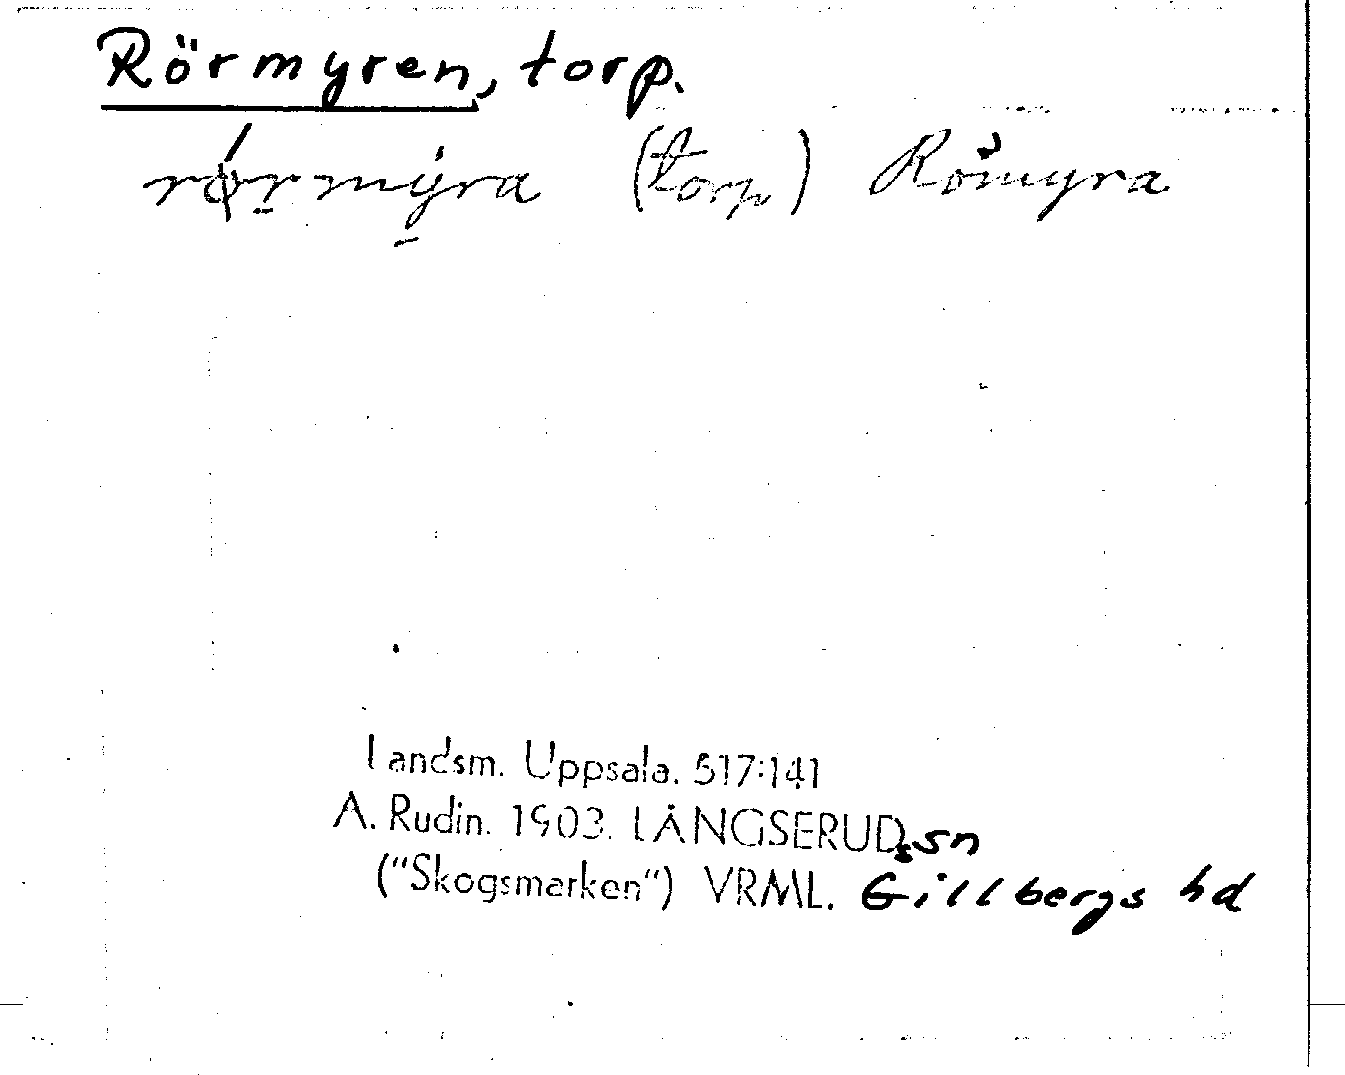 Rörmyren, torp.
rørmyra (torp) Römyra
Landsm. Uppsala. 517:141
A. Rudin. 1903. LÅNGSERUDs sn
("Skogsmarken") VRML. Gillbergs hd